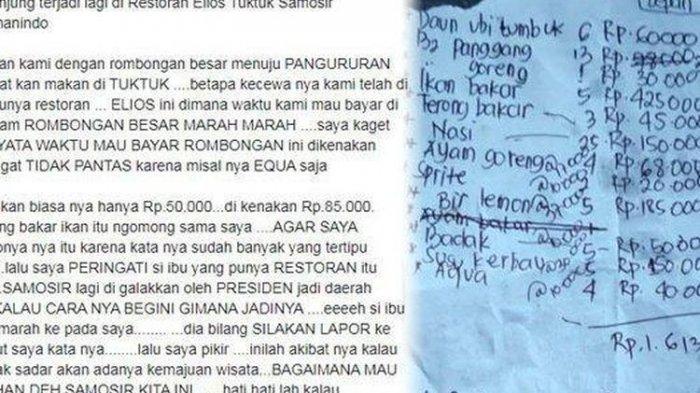 njung terjadi lagi di Restoran Elios Tuktuk Samosir
manindo
an kami dengan rombongan besar menuju PANGURURAN
at kan makan di TUKTUK ....betapa kecewa nya kami telah di
unya restoran ... ELIOS ini dimana waktu kami mau bayar di
am ROMBONGAN BESAR MARAH MARAH ....saya kaget
YATA WAKTU MAU BAYAR ROMBONGAN ini dikenakan
gat TIDAK PANTAS karena misal nya EQUA saja
kan biasa nya hanya Rp.50.000...di kenakan Rp.85.000.
ng bakar ikan itu ngomong sama saya ....AGAR SAYA
onya nya itu karena kata nya sudah banyak yang tertipu
..lalu saya PERINGATI si ibu yang punya RESTORAN itu
.SAMOSIR lagi di galakkan oleh PRESIDEN jadi daerah
KALAU CARA NYA BEGINI GIMANA JADINYA ....eeeeh si ibu
marah ke pada saya........ ....dia bilang SILAKAN LAPOR ke
ut saya kata nya.......lalu saya pikir ....inilah akibat nya kalau
ak sadar akan adanya kemajuan wisata...BAGAIMANA MAU
HAN DEH SAMOSIR KITA INI ..... hati hati lah kalau
Daun ubi tumbuk 6 Rp.60000
B2 panggang 13 Rp.
goreng 1 Rp 30 000
Ikan bakar 5 Rp.425000
Terong bakar 3 Rp.45.000
Nasi 25 Rp.150.000
Ayam goreng 4 Rp.68.000
Sprite 2 Rp.20.000
Bir lemon 5 Rp.185.000
Ayam bakar
Badak 5 Rp.50.000
Susu kerbau 5 Rp.150.00
Aqua 4 Rp.40.000
Rp.1.613